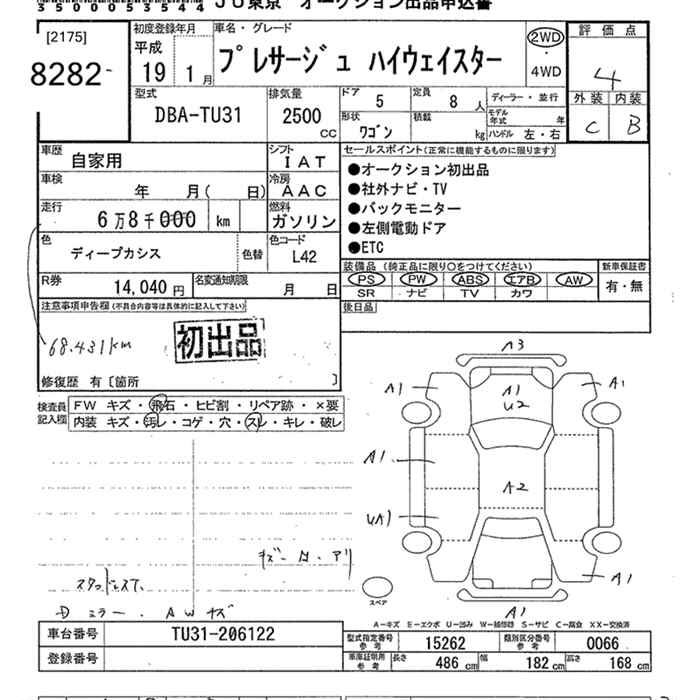 35000535​44 JU東京 オークション出品申込書
[2175]
8282
初度登録年月
平成
19 1月
車名・グレード
プレサージュ ハイウェイスター
2WD
・
4WD
評価点
4
外装 内装
C B
型式
DBA-TU31
排気量
2500 CC
ドア 5
定員 8人
ディーラー・並行
形状 ワゴン
積載 kg
モデル年式 年
ハンドル 左・右
車歴 自家用
シフト IAT
車検 年 月( 日)
冷房 AAC
走行 6万8千000 km
燃料 ガソリン
色 ディープカシス 色替
色コード L42
R券 14,040円
名変通知期限 月 日
セールスポイント(正常に機能するものに限ります)
●オークション初出品
●社外ナビ・TV
●バックモニター
●左側電動ドア
●ETC
装備品(純正品に限り○をつけてください)
PS PW ABS エアB AW
SR ナビ TV カワ
新車保証書
有・無
後日品
注意事項申告欄(不具合内容等は具体的に記入して下さい)
68.431km
初出品
修復歴 有〔箇所 〕
検査員記入欄
FW キズ・飛石・ヒビ割・リペア跡・×要
内装 キズ・汚レ・コゲ・穴・スレ・キレ・破レ
A3
A1
A1
U2
A1
A1
A2
UA1
A1
A1
スペア
キズ
アリ
Dミラー. AWキズ
A-キズ E-エクボ U-凹み W-補修跡 S-サビ C-腐食 XX-交換済
車台番号 TU31-206122
登録番号
型式指定番号参考 15262
類別区分番号参考 0066
車庫証明用参考
長さ 486 cm
幅 182 cm
高さ 168 cm